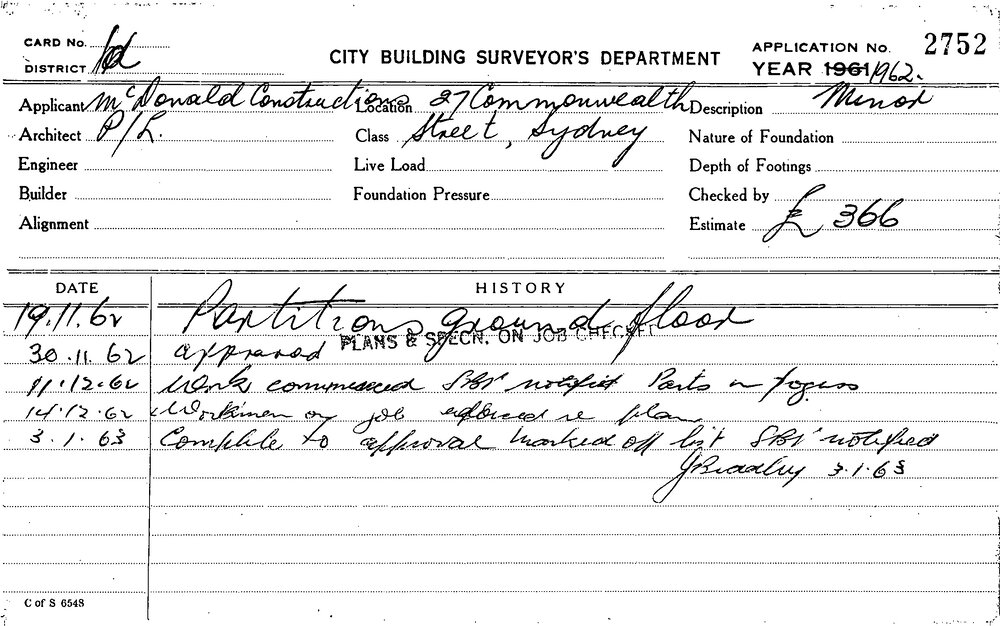 CARD No.
DISTRICT
CITY BUILDING SURVEYOR'S DEPARTMENT
APPLICATION No. 2752
YEAR 1961 1962.
Applicant McDonald Constructions Location 27 Commonwealth Description Minor
Architect P/L. Class Street, Sydney Nature of Foundation
Engineer Live Load Depth of Footings
Builder Foundation Pressure Checked by
Alignment Estimate £ 366
DATE HISTORY
19.11.62 Partitions ground floor
PLANS & SPECN. ON JOB CHECKED
30.11.62 approved
11.12.62 Work commenced SBI notified Parts in progress
14.12.62 Workmen on job re plan
3.1.63 Complete to approval marked off list SBI notified
JBradley 3.1.63
C of S 6548